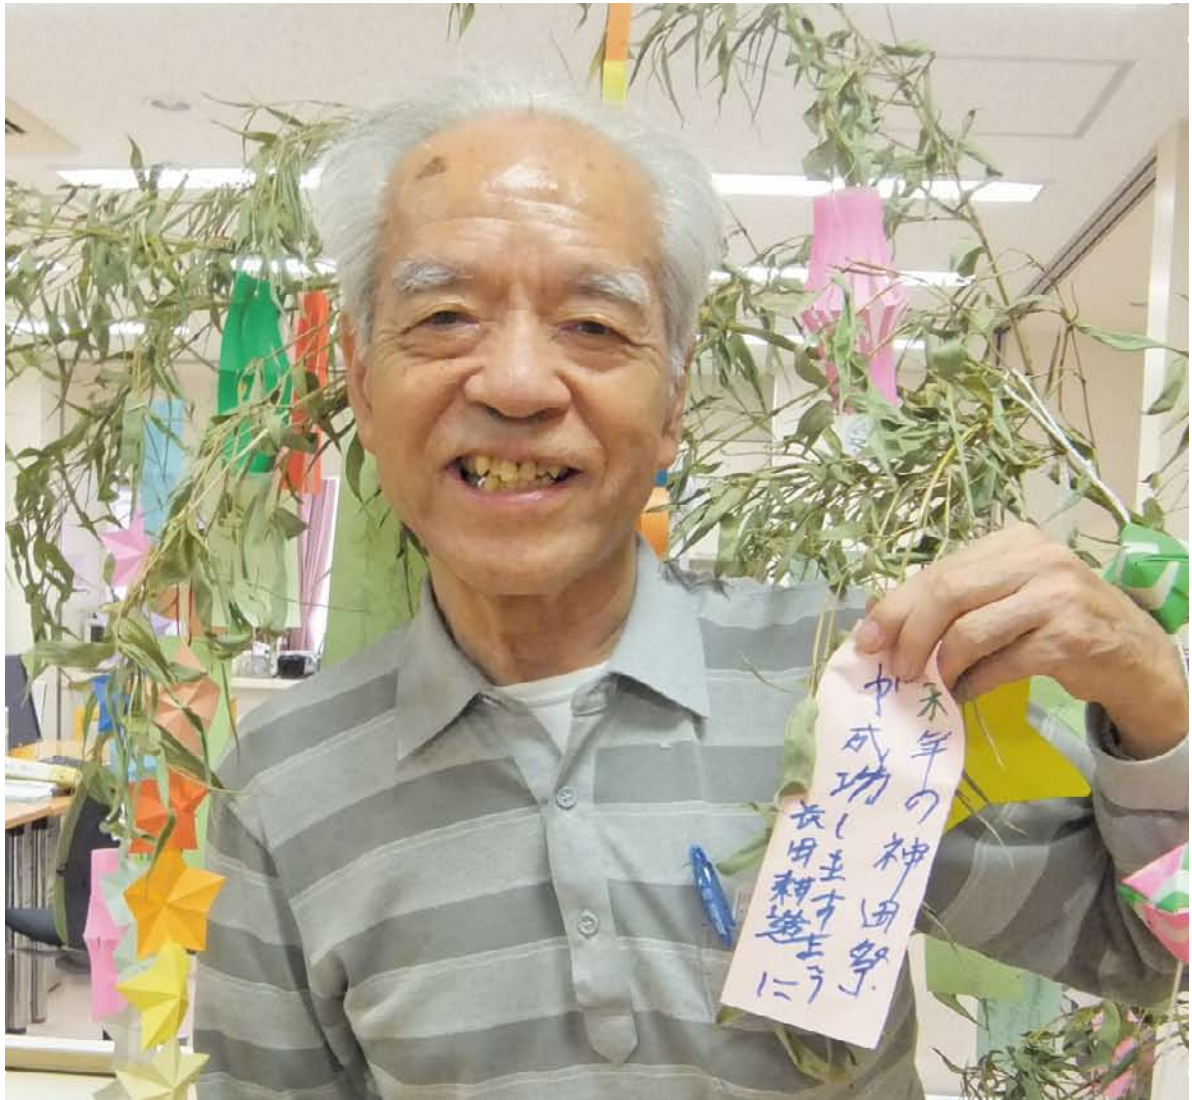 来年の神田祭
が成功しますように
長田耕造